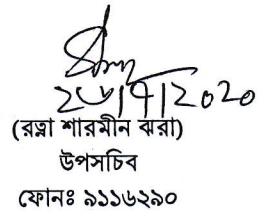 ২৬/৭/২০২০
(রত্না শারমীন ঝরা)
উপসচিব
ফোনঃ ৯১১৬২৯০